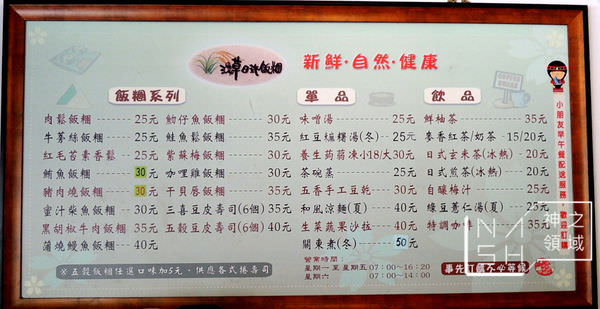 淺草日式飯糰
新鮮·自然·健康
飯糰系列
肉鬆飯糰 25元
牛蒡絲飯糰 25元
紅毛苔素香鬆 25元
鮪魚飯糰 30元
豬肉燒飯糰 30元
蜜汁柴魚飯糰 30元
黑胡椒牛肉飯糰 35元
蒲燒鰻魚飯糰 40元
魩仔魚飯糰 30元
鮭魚鬆飯糰 35元
紫蘇梅飯糰 30元
咖哩雞飯糰 30元
干貝唇飯糰 35元
三喜豆皮壽司(6個) 35元
五穀豆皮壽司(6個) 40元
※五穀飯糰任選口味加5元，供應各式捲壽司
單品
味噌湯 25元
紅豆麻糬湯(冬) 25元
養生蒟蒻凍 小18/大30元
茶碗蒸 25元
五香手工豆乾 30元
和風涼麵(夏) 40元
生菜蔬果沙拉 40元
關東煮(冬) 50元
營業時間：
星期一至星期五 07:00～16:20
星期六 07:00～14:00
飲品
鮮柚茶 35元
麥香紅茶/奶茶 15/20元
日式玄米茶(冰熱) 20元
日式煎茶(冰熱) 20元
自釀梅汁 25元
綠豆薏仁湯(夏) 25元
特調咖啡 35元
事先訂購不必等候
COFFEE BREAK
小朋友早午餐配送服務，歡迎訂購
NASH
神之領域